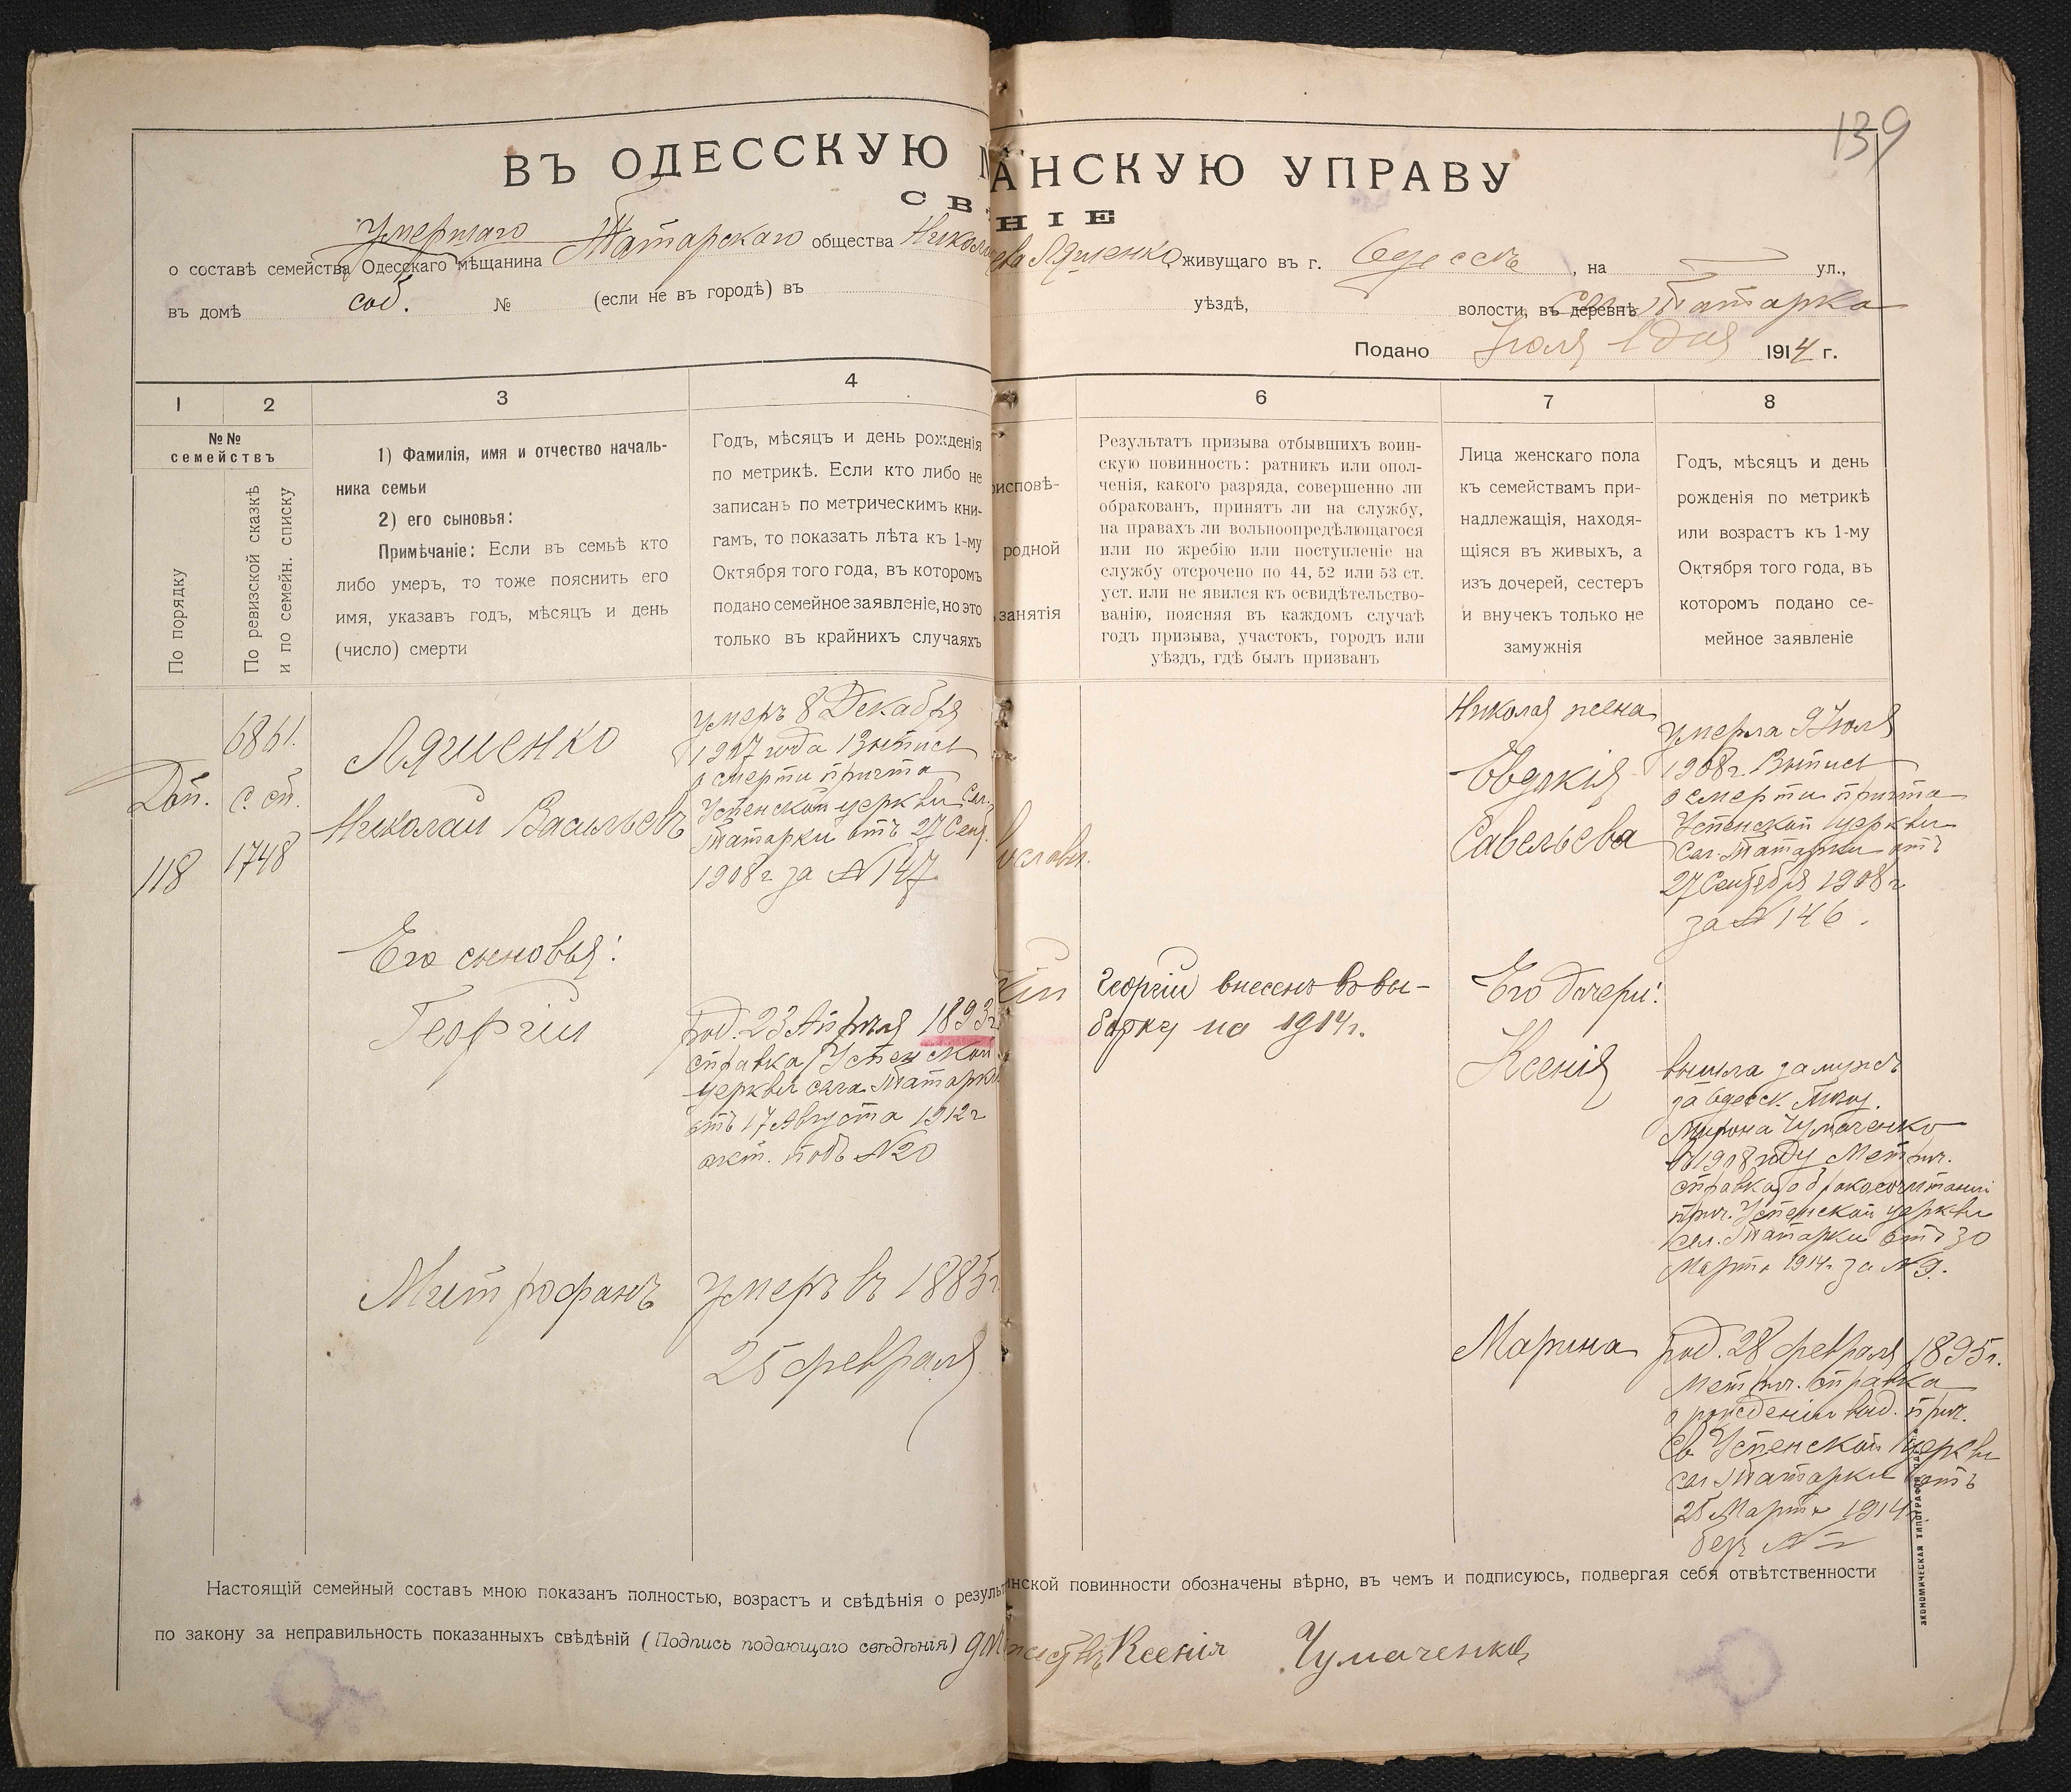 139
ВЪ ОДЕССКУЮ М АНСКУЮ УПРАВУ
СВ НІЕ
Умершаго
о составѣ семейства Одесскаго мѣщанина Татарскаго общества Никола ева Ляшенко, живущаго въ г. Одессѣ, на ул.,
въ домѣ соб. № (если не въ городѣ) въ уѣздѣ, волости, въ деревнѣ Сел. Татарка
Подано Іюля 1 дня 1914 г.
1 2 3 4 6 7 8
№№
семействъ
По порядку
По ревизской сказкѣ
и по семейн. списку
1) Фамилія, имя и отчество началь-
ника семьи
2) его сыновья:
Примѣчаніе: Если въ семьѣ кто
либо умеръ, то тоже пояснить его
имя, указавъ годъ, мѣсяцъ и день
(число) смерти
Годъ, мѣсяцъ и день рожденія
по метрикѣ. Если кто либо не
записанъ по метрическимъ кни-
гамъ, то показать лѣта къ 1-му
Октября того года, въ которомъ
подано семейное заявленіе, но это
только въ крайнихъ случаяхъ
рисповѣ-
родной
занятія
Результатъ призыва отбывшихъ воин-
скую повинность: ратникъ или опол-
ченія, какого разряда, совершенно ли
обракованъ, принятъ ли на службу,
на правахъ ли вольноопредѣлющагося
или по жребію или поступленіе на
службу отсрочено по 44, 52 или 53 ст.
уст. или не явился къ освидѣтельство-
ванію, поясняя въ каждомъ случаѣ
годъ призыва, участокъ, городъ или
уѣздъ, гдѣ былъ призванъ
Лица женскаго пола
къ семействамъ при-
надлежащія, находя-
щіяся въ живыхъ, а
изъ дочерей, сестеръ
и внучекъ только не
замужнія
Годъ, мѣсяцъ и день
рожденія по метрикѣ
или возрастъ къ 1-му
Октября того года, въ
которомъ подано се-
мейное заявленіе
Доп.
118
6861.
с. сп.
1748
Ляшенко
Николай Васильевъ
умеръ 8 Декабря
1907 года Выпись
о смерти причта
Успенской церкви Сел.
Татарки отъ 27 Сент.
1908 г за № 147
ославн.
Николая жена
Евдокія
Савельева
умерла 9 Іюля
1908 г. Выпись
о смерти причта
Успенской церкви
Сел. Татарки отъ
27 Сентября 1908 г
за № 146.
Его сыновья:
Георгій
род. 23 Апрѣля 1893 г
справка Успенской
церкви села Татарки
отъ 17 Августа 1912 г
акт. подъ № 20
Георгій внесенъ въ вы-
борку на 1914 г.
Его дочери:
Ксенія
вышла замужъ
за Одесск. Мѣщ.
Мирона Чумаченко
въ 1908 году Метрич.
справка о бракосочетаніи
прич. Успенской церкви
Сел. Татарки отъ 30
Марта 1914 г за № 9.
Митрофанъ
умеръ въ 1885 г.
25 февраля
Марина
род. 28 февраля 1895 г.
Метрич. справка
о рожденіи выд. прич.
Св Успенской церкви
сел Татарки отъ
25 Марта 1914
безъ №
Настоящій семейный составъ мною показанъ полностью, возрастъ и свѣдѣнія о результ инской повинности обозначены вѣрно, въ чемъ и подписуюсь, подвергая себя отвѣтственности
по закону за неправильность показанныхъ свѣдѣній (Подпись подающаго свѣдѣнія) Ксенія Чумаченкова
ЭКОНОМИЧЕСКАЯ ТИПОГРАФІЯ